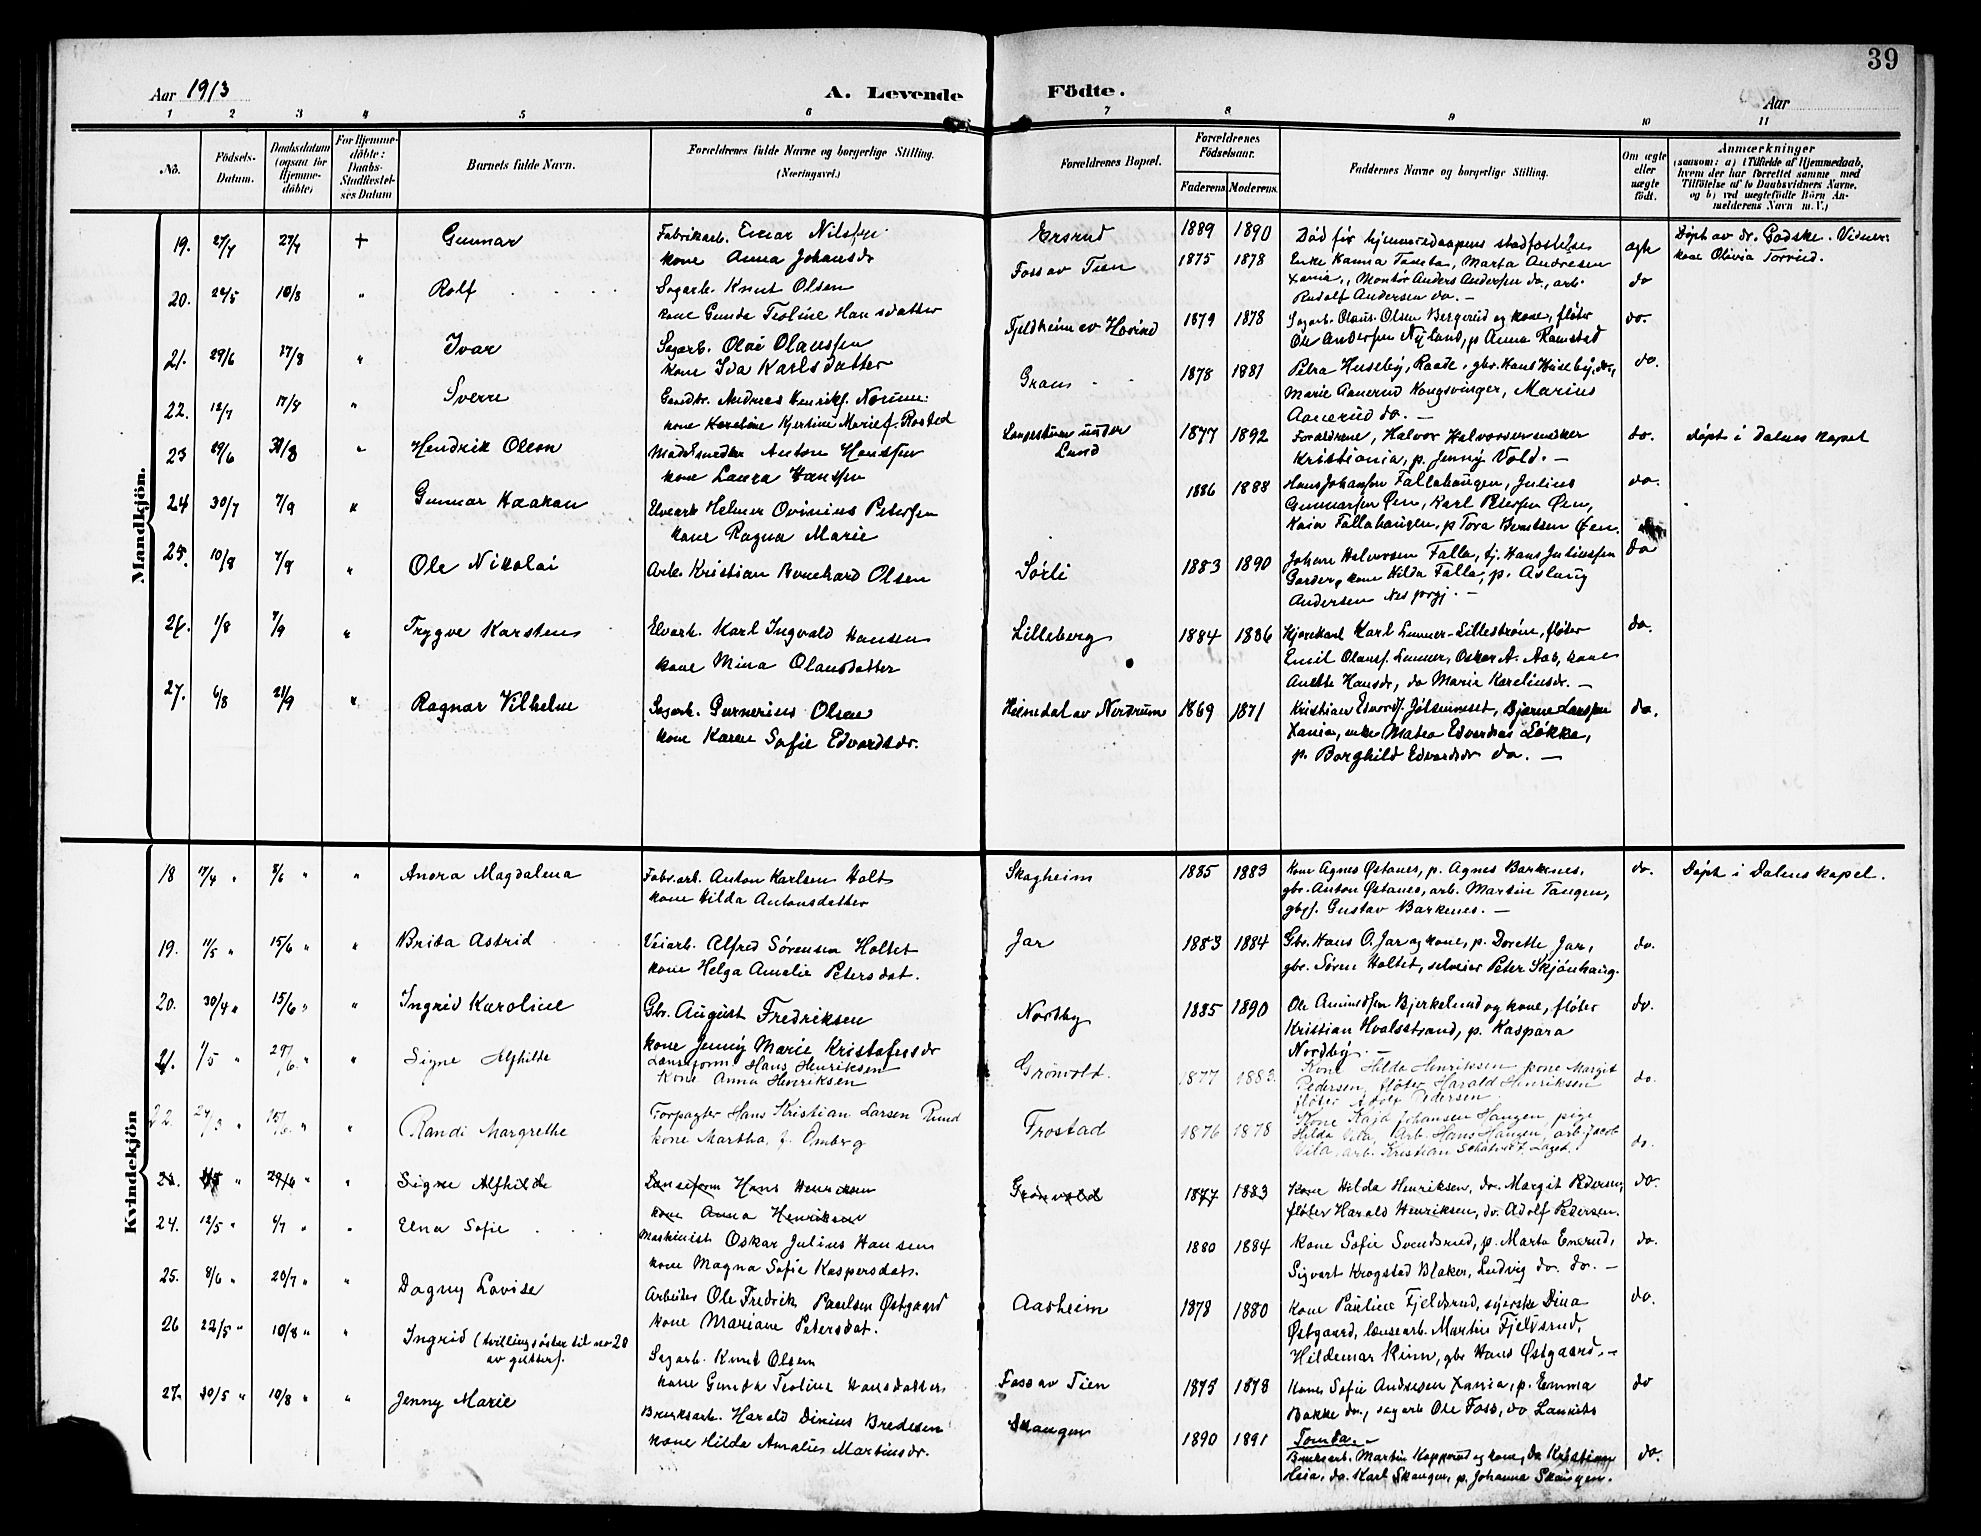 39
Aar 1913
A. Levende Födte.
Aar
1 2 3 4 5 6 7 8 9 10 11
No.
Födsels-Datum.
Daabsdatum (ogsaa for Hjemme-döbte)
For Hjemme-döbte: Daabs-Stadfæstel-ses Datum
Barnets fulde Navn.
Forældrenes fulde Navne og borgerlige Stilling. (Næringsvei.)
Forældrenes Bopæl.
Forældrenes Födselsaar.
Faderens Moderens
Faddernes Navne og borgerlige Stilling.
Om ægte eller uægte födt.
Anmærkninger
(saasom: a) i Tilfælde af Hjemmedaab,
hvem der har forrettet samme med
Tilföielse af to Daabsvidners Navne,
og b) ved uægtefödte Börn An-
melderens Navn m. V.)
Mandkjön.
19. 27/4 27/4 + Gunnar
Fabrikarb. Einar Nilssen
kone Anna Johansdr
Ersrud 1889 1890
Död før hjemmedaapens stadfæstelse
ægte
Døpt av dr. Godske. Vidner:
kone Olivia Torrud.
20. 24/5 10/8 " Rolf
Sagarb. Knut Olsen
kone Gunda Teoline Hansdatter
Foss av Tien 1875 1878
Enke Kanna Tomta, Marta Andresen
Xania, Montør Anders Andersen do., arb.
Rudolf Andersen do. —
do
21. 29/6 17/8 " Ivar
Sagarb. Olai Olaussen
kone Ida Karlsdatter
Fjeldheim av Hovind 1879 1878
Sagarb. Olaus Olsen Bergerud og kone, fløter
Ole Anderssen Nyland, p. Anna Ramstad
do.
22. 12/7 17/8 " Sverre
Gaardbr. Andreas Henriks. Norum
kone Karoline Kjerstine Marie f. Rosted
Gran 1878 1881
Petra Huseby, Raade, gbr. Hans Huseby, do.,
Marie Aanerud Kongsvinger, Marius
Aanerud do. —
do.
23 29/6 31/8 " Hendrik Olson
Møbelsnedker Anton Hanssen
kone Laura Hanssen
Langestuen under Lund 1877 1892
Forældrene, Halvor Halvorsen snedker
Kristiania, p. Jenny Vold. —
do. Døpt i Dalens kapel
24 30/7 7/9 " Gunnar Haakon
Elvearb Helmer Ovinius Petersen
kone Ragna Marie
1886 1888
Hans Johansen Fallahaugen, Julius
Gunnarsen Øen, Karl Petersen Øen,
Kaia Fallahaugen, p Tora Berntsen Øen.
do.
25. 10/8 7/9 " Ole Nikolai
Arb. Kristian Bernhard Olsen
Sørli 1883 1890
Johan Halvorsen Falla, tj. Hans Juliussen
Garder, kone Hilda Falla, p. Aslaug
Andersen Nes prgj. —
do
26. 1/8 7/9 " Trygve Karsten
Elvarb. Karl Ingvald Hansen
kone Mina Olausdatter
Lilleberg 1884 1886
Kjørekarl Karl Lunner Lillestrøm, fløter
Emil Olauss. Lunner, Oskar A. Aas, kone
Anette Hansdr, do Marie Kareliusdr. —
do.
27. 6/8 21/9 " Ragnar Vilhelm
Sagarb. Gunerius Olsen
kone Karen Sofie Edvardsdr.
Heinedal av Nordrum 1869 1871
Kristian Edvards. Jølsenneset, Bjarne Larssen
Xania, enke Matea Edvardsen Løkka,
p. Borghild Edvardsdr do. —
do.
Kvindekjön
18 17/4 " 8/6 " " Anora Magdalena
Fabr.arb. Anton Karlsen Holt
kone Hilda Antonsdatter
Skogheim 1885 1883
Kone Agnes Østanes, p. Agnes Barkenes,
gbr. Anton Østanes, arb. Martin Tangen,
gbgs. Gustav Barkenes. —
do. Døpt i Dalens kapel.
19. 11/5 " 15/6 " " Brita Astrid
Veiarb. Alfred Sørensen Holtet
kone Helga Amalie Petersdat.
Jar 1883 1884
Gbr. Hans O. Jar og kone, p. Dorette Jar,
gbr. Søren Holtet, selveier Peter Skjønhaug.
do.
20. 30/4 " 15/6 " " Ingrid Karoline
Gbr. August Fredriksen
kone Jenny Marie Kristofersdr
Nordby 1885 1890
Ole Amundsen Bjerkelund og kone, fløter
Kristian Hvalsstrand, p. Kaspara
Nordby. —
do.
21. 1/5 " 29/6 " " Signe Alfhilde
Lanseform Hans Henriksen
Kone Anna Henriksen
Grönvold. 1877 1883.
Kone Hilda Henriksen, kone Margit
Pedersen, fløter Harald Henriksen
fløter Adolf Pedersen.
do.
22. 24/3 " 15/6 " " Randi Margrethe
Forpagter Hans Kristian Larsen Rund
kone Martha, f. Omberg
Frostad 1876 1878
Kone Kaja Johansen Haugen, pige
Hilda Vila, Arb. Hans Haugen, arb. Jacob
Vila, arb. Kristian
do.
1/5 " 29/6 " " Signe Alfhilde
Lanseform Hans Henriksen
kone Anna Henriksen
Grönvold 1877 1883
Kone Hilda Henriksen, do. Margit Pedersen,
fløter Harald Henriksen, do. Adolf Pedersen.
do.
24. 12/5 " 6/7 " " Elna Sofie
Maskinist Oskar Julius Hansen
kone Magna Sofie Kaspersdat.
1880 1884
Kone Sofie Svendsrud, p. Marta Enerud,
Sigvart Krogstad Blaker, Ludvig do. do. —
do.
25. 8/6 " 20/7 " " Dagny Lovise
Arbeider Ole Fredrik Paulsen Østgaard
kone Mariane Petersdat.
Aasheim 1878 1880
Kone Pauline Fjeldsrud, syerske Dina
Østgaard, lensearb. Martin Fjeldsrud,
Hildemar Rinn, gbr Hans Østgaard. —
do.
26 22/5 " 10/8 " " Ingrid (tvillingsøster til no 20
av gutter).
Sagarb. Knut Olsen
kone Gunda Teoline Hansdatter
Foss av Tien 1875 1878
Kone Sofie Andresen Xania, p. Emma
Bakke do., sagarb Ole Foss, do Laurits
Tomta. —
do
27. 30/5 " 10/8 " " Jenny Marie
Bruksarb. Harald Dinius Bredesen
kone Hilda Amalie Martinsdr.
Skaugen 1890 1891
Bruksarb. Martin Kopperud og kone, do Kristian
do. Karl Skaugen, p. Johanna Skaugen.
do.